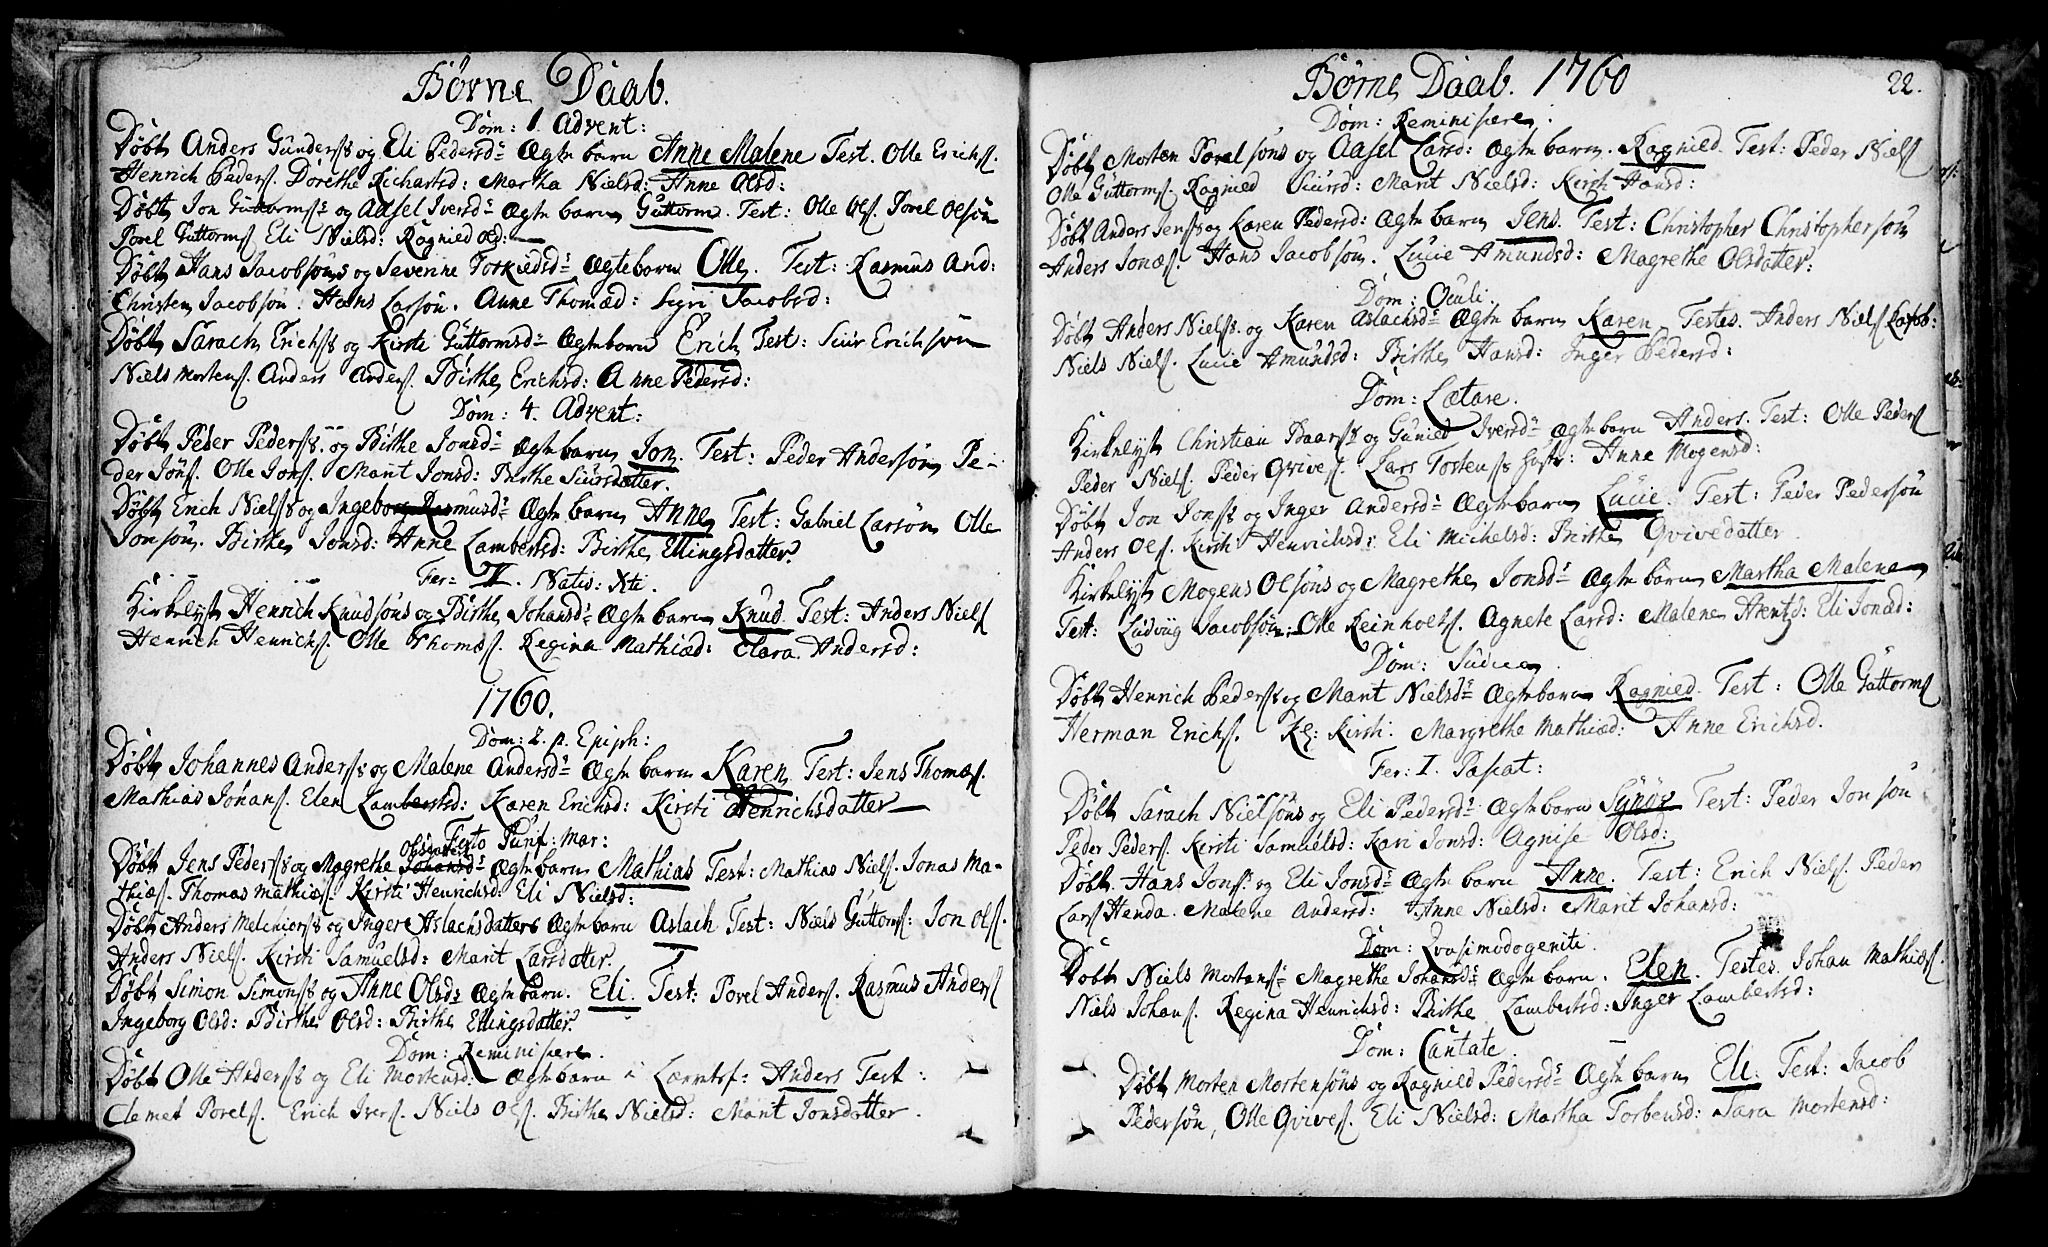 Børne Daab.
Dom: 1. Advent:
Døbt Anders Gunderss og Eli Pedersd: Ægte barn Anne Malene Test. Olle Erichs.
Henrich Peders. Dorethe Richartsd: Martha Nielsd: Anne Olsd:
Døbt Jon Guttormss og Aasel Iversd: Ægte barn Guttorm. Test: Olle Ols. Povel Olsøn
Povel Guttorms Eli Nielsd: Ragnild Old:
Døbt Hans Jacobsøns og Sevenne Torkildsd: Ægte barn Olle. Test: Rasmus And:
Christen Jacobsøn. Hans Larsøn. Anne Thomæd: Sigri Jacobsd:
Døbt Sarach Erichss og Kirsti Guttormsd: Ægte barn Erich Test: Siur Erichsøn
Niels Mortens. Anders Anders. Birthe Erichsd: Anne Pedersd:
Dom: 4. Advent:
Døbt Peder Pederss. og Birthe Jonsd: Ægte barn Jon. Test: Peder Andersøn Pe-
der Jons. Olle Jons. Marit Jonsd: Birthe Siursdatter.
Døbt Erich Nielss og Ingeborg Rasmusd: Ægte barn Anne Test: Gabriel Larsøn Olle
Jonsøn. Birthe Jonsd: Anne Lambertsd: Birthe Ellingsdatter.
Fer: II. Nativ: Xti.
Kirkelyst Henrich Knudsøns og Birthe Johansd: Ægte barn Knud. Test: Anders Niels
Henrich Henrichs. Olle Thomæs. Regina Mathiæd: Clara Andersd:
1760.
Dom: 2. p. Epiph:
Døbt Johannes Anderss og Malene Andersd: Ægte barn Karen. Test: Jens Thomæs.
Mathias Johans. Elen Lambertsd: Karen Erichsd: Kirsti Henrichsdatter
Festo Purif: Mar:
Døbt Jens Pederss og Magrethe Johansd: Ægte barn Mathias Test: Mathias Niels. Jonas Ma-
thiæs. Thomas Mathiæs. Kirsti Henrichsd: Eli Nielsd:
Døbt Anders Melchiorss og Inger Aslachsdatters Ægte barn Aslach Test: Niels Guttorms: Jon Ols.
Anders Niels. Kirsti Samuelsd: Marit Larsdatter.
Døbt Simon Simonss og Anne Olsd: Ægte barn. Eli. Test: Povel Anders. Rasmus Anders
Ingeborg Olsd: Birthe Olsd: Birthe Ellingsdatter.
Dom: Reminiscere.
Døbt Olle Anderss og Eli Mortensd: Ægte barn i Anders Test:
Clemet Povels. Erich Ivers. Niels Ols. Birthe Nielsd: Marit Jonsdatter.
Børne Daab. 1760
22.
Dom: Reminiscere.
Døbt Morten Povelsøns og Aasel Larsd: Ægte barn. Ragnild Test: Peder Niels
Olle Guttorms. Ragnild Siursd: Marit Nielsd: Kirsti Hansd:
Døbt Anders Jenss og Karen Pedersd: Ægte barn Jens. Test: Christopher Christophersøn
Anders Jonæs. Hans Jacobsøn. Lucie Amundsd: Magrethe Olsdatter:
Dom: Oculi.
Døbt Anders Nielss. og Karen Aslachsd: Ægte barn Karen Testes. Anders Niels
Niels Niels. Lucie Amundsd: Birthe Hansd: Inger Pedersd:
Dom: Lætare.
Kirkelyst Christian Baarss og Gunild Iversd: Ægte barn Anders. Test: Olle Peders
Peder Niels. Peder Qvives. Lars Tostens Anne Mogensd:
Døbt Jon Jonss og Inger Andersd: Ægte barn Lucie. Test: Peder Pedersøn
Anders Ols. Kirsti Henrichsd: Eli Michelsd: Birthe Qvivedatter.
Kirkelyst Mogens Olsøns og Magrethe Jonsd: Ægte barn Martha Malena
Test: Ludvig Jacobsøn. Olle Reinholts. Agnete Larsd: Malene Arentzd: Eli Jonæd:
Dom: Judica.
Døbt Henrich Pederss og Marit Nielsd: Ægte barn Ragnild. Test: Olle Guttorms
Herman Erichs. Kirsti. Margrethe Mathiæd: Anne Erichsd.
Fer: I. Pascat:
Døbt Sarach Nielsøns og Eli Pedersd: Ægte barn Synøv Test: Peder Jonsøn
Peder Peders. Kirsti Samuelsd: Kari Jonsd: Agnise Olsd:
Døbt Hans Jonss og Eli Jonsd: Ægte barn Anne. Test: Erich Niels. Peder
Lars Henda. Malene Andersd: Anne Nielsd: Marit Johansd:
Dom: Qvasimodogeniti.
Døbt Niels Mortens: Magrethe Johansd: Ægte barn. Elen. Testes. Johan Mathiæs.
Niels Johans. Regina Henrichsd: Birthe Lambertsd: Inger Lambertsd:
Dom: Cantate.
Døbt Morten Mortensøns og Ragnild Pedersd: Ægte barn Eli. Test: Jacob
Pedersøn, Olle Qvives. Eli Nielsd: Martha Torbensd: Sara Mortensd: